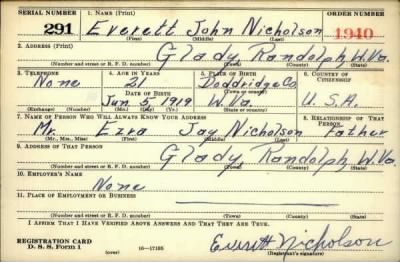 SERIAL NUMBER 1. NAME (Print) ORDER NUMBER
291 Everett John Nicholson 1940
(First) (Middle) (Last)
2. ADDRESS (Print)
Glady Randolph W.Va.
(Number and street or R. F. D. number) (Town) (County) (State)
3. TELEPHONE 4. AGE IN YEARS 5. PLACE OF BIRTH 6. COUNTRY OF CITIZENSHIP
None 21 Doddridge Co.
DATE OF BIRTH (Town or county)
Jun. 5, 1919 W.Va. U.S.A.
(Exchange) (Number) (Mo.) (Day) (Yr.) (State or country)
7. NAME OF PERSON WHO WILL ALWAYS KNOW YOUR ADDRESS 8. RELATIONSHIP OF THAT PERSON
Mr. Ezra Jay Nicholson Father
(Mr., Mrs., Miss) (First) (Middle) (Last)
9. ADDRESS OF THAT PERSON
Glady, Randolph, W.Va.
(Number and street or R. F. D. number) (Town) (County) (State)
10. EMPLOYER'S NAME
None
11. PLACE OF EMPLOYMENT OR BUSINESS
(Number and street or R. F. D. number) (Town) (County) (State)
I AFFIRM THAT I HAVE VERIFIED ABOVE ANSWERS AND THAT THEY ARE TRUE.
REGISTRATION CARD Everett Nicholson
D. S. S. Form 1 (over) 16—17105 (Registrant's signature)